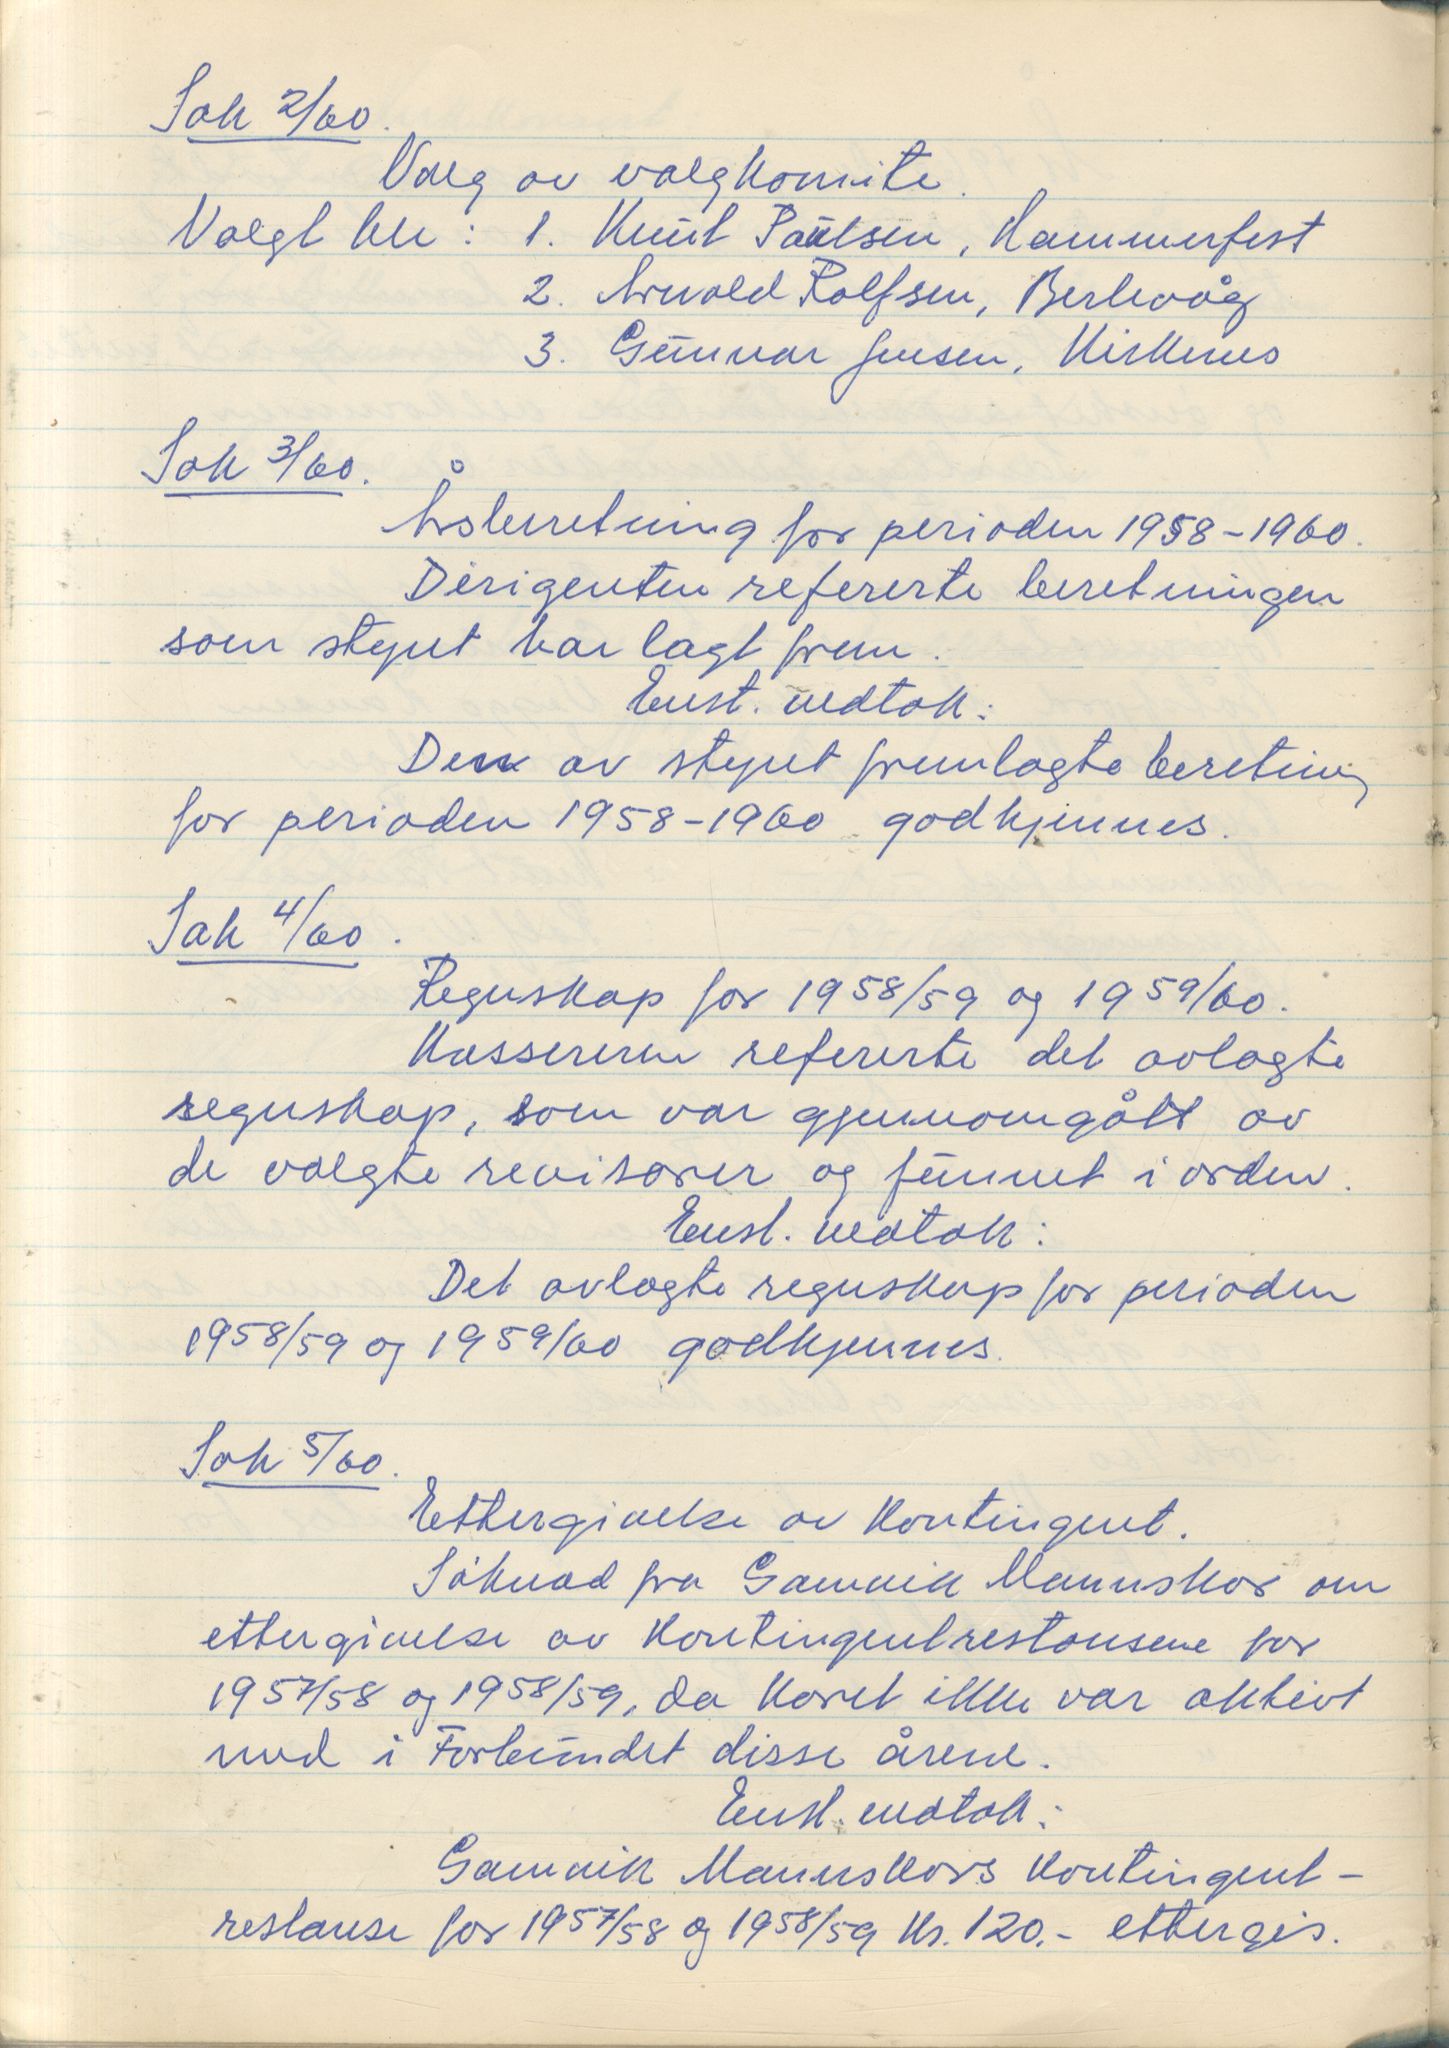 Sak 2/60.
Valg av valgkomite.
Valgt ble: 1. Knut Paulsen, Hammerfest
2. Arnold Rolfsen, Berlevåg
3. Gunnar Jensen, Kirkenes
Sak 3/60.
Årsberetning for perioden 1958-1960.
Dirigenten refererte beretningen
som styret har lagt frem.
Enst. vedtak:
Den av styret fremlagte beretning
for perioden 1958-1960 godkjennes.
Sak 4/60.
Regnskap for 1958/59 og 1959/60.
Kassereren refererte det avlagte
regnskap, som var gjennomgått av
de valgte revisorer og funnet i orden.
Enst. vedtak:
Det avlagte regnskap for perioden
1958/59 og 1959/60 godkjennes.
Sak 5/60.
Ettergivelse av kontingent.
Søknad fra Gamvik Mannskor om
ettergivelse av kontingentrestansene for
1957/58 og 1958/59, da koret ikke var aktivt
med i Forbundet disse årene.
Enst. vedtak:
Gamvik Mannskors kontingent-
restanse for 1957/58 og 1958/59 kr. 120.- ettergis.